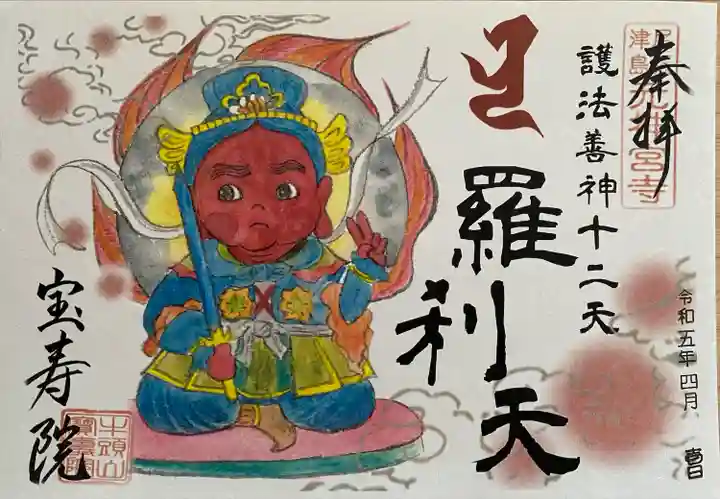 奉拝
津島神宮寺
護法善神十二天
羅刹天
令和五年四月 吉日
宝寿院
牛頭山
寶壽院